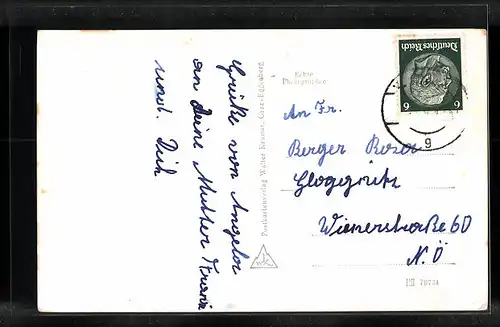 Grüße von Angelor
an Deine Mutter
und. Dich
Postkartenverlag Walter Kramer, Graz-Eggenberg
Echte
Photographie
Deutsches Reich
6 6
9
An Fr.
Berger Rosa
Gloggnitz
Wienerstraße 60
N.Ö